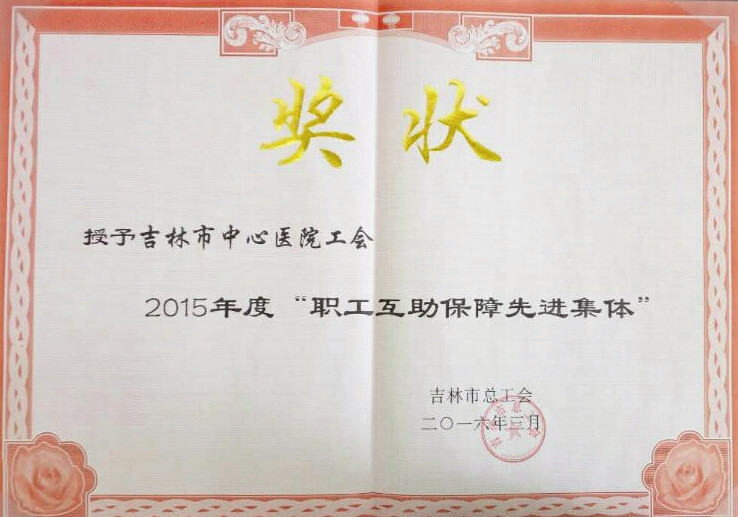 奖状
授予吉林市中心医院工会
2015年度“职工互助保障先进集体”
吉林市总工会
二〇一六年三月